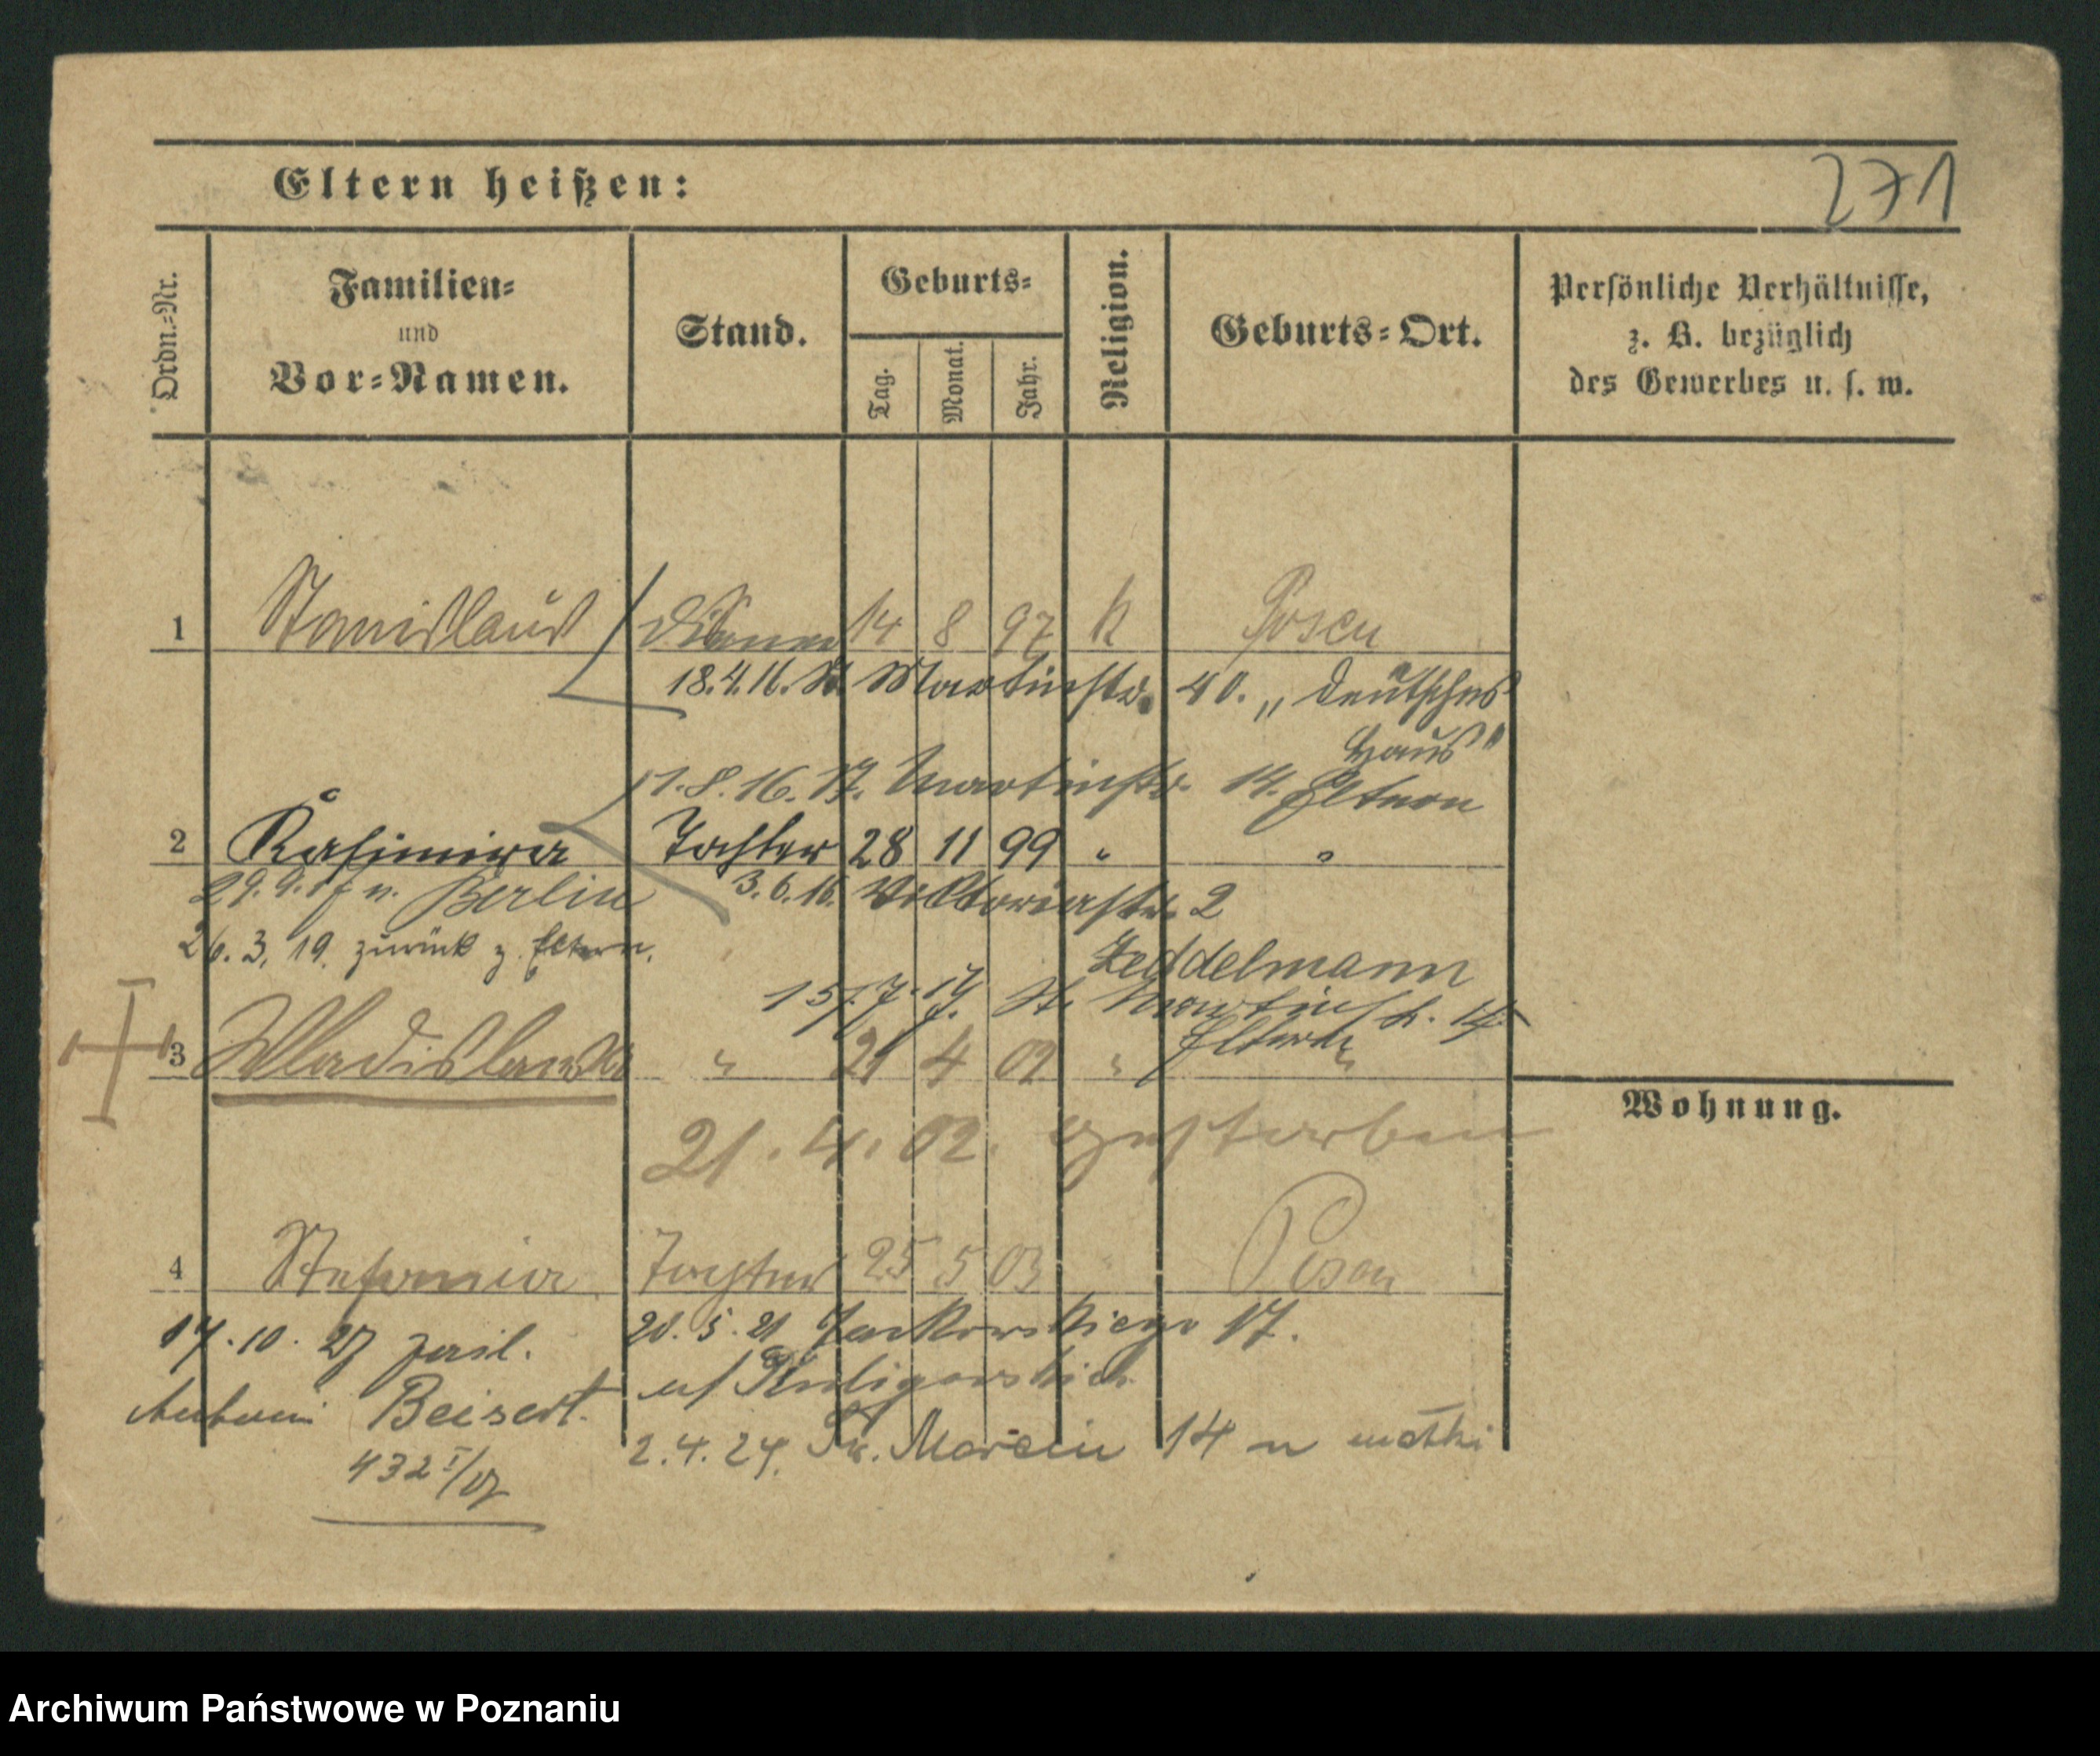 271
Eltern heißen:
Ordn.-Nr.
Familien-
und
Vor-Namen.
Stand.
Geburts-
Tag.
Monat.
Jahr.
Religion.
Geburts-Ort.
Persönliche Verhältnisse,
z. B. bezüglich
des Gewerbes u. s. w.
1 Stanislaus 14 8 97 k Posen
18.4.16. St. Martinstr. 40. „Deutsches
Haus"
1.8.16. Martinstr. 14. Eltern
2 Kasimira Tochter 28 11 99 " "
29.9.17 n. Berlin
3.6.16. Viktoriastr. 2
Zeddelmann
26.3.19. zurück z. Eltern.
15/7.19. St. Martinstr. 14
Eltern
3 Wladislawa " 21 4 02 " "
21.4.02. gestorben
Wohnung.
4 Stefania Tochter 25 5 03 Posen
17.10.27 zaśl.
20.5.21 Jackowskiego 17.
Beisert.
2.4.24. Św. Marcin 14 u matki
432 I/07
Archiwum Państwowe w Poznaniu